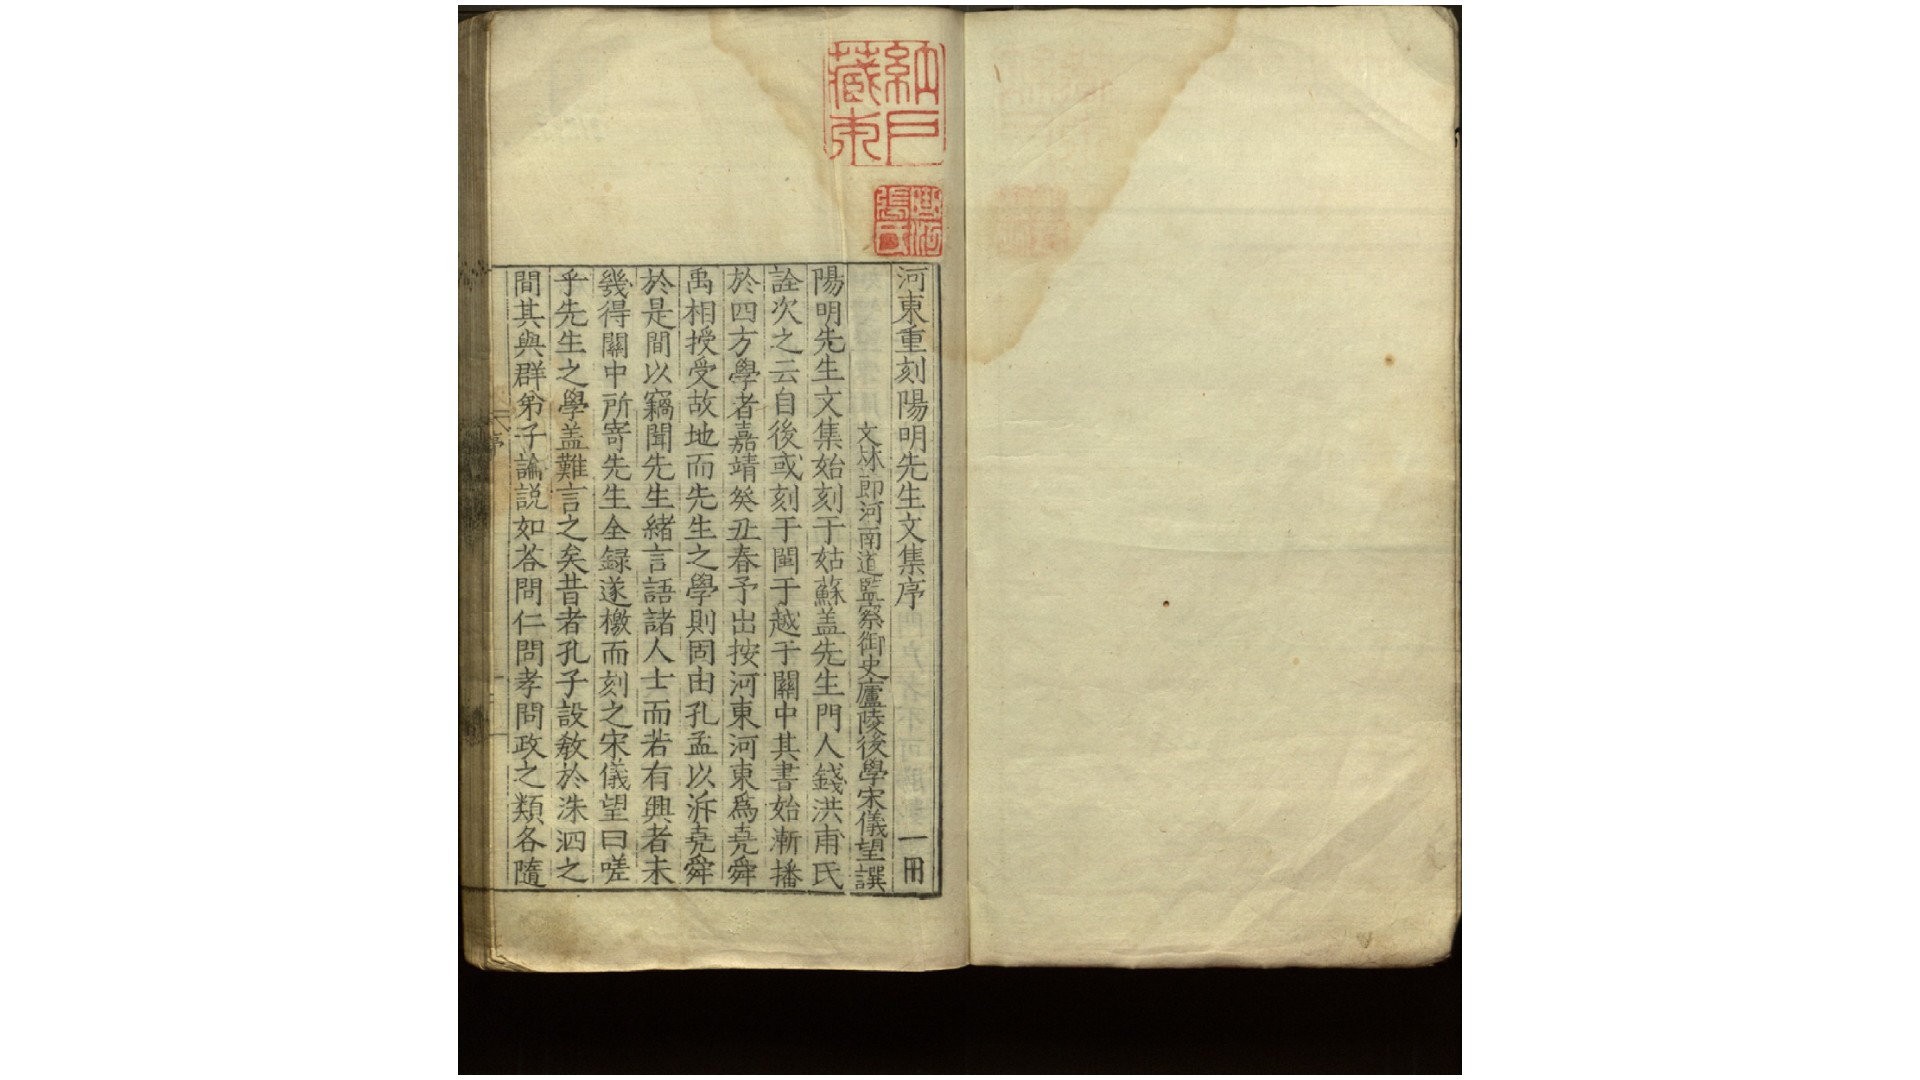 河東重刻陽明先生文集序 一冊
文林郎河南道監察御史廬陵後學宋儀望譔
陽明先生文集始刻于姑蘇盖先生門人錢洪甫氏
詮次之云自後或刻于閩于越于關中其書始漸播
於四方學者嘉靖癸丑春予出按河東河東爲尭舜
禹相授受故地而先生之學則固由孔孟以泝尭舜
於是間以竊聞先生緒言語諸人士而若有興者未
幾得關中所寄先生全録遂檄而刻之宋儀望曰嗟
乎先生之學盖難言之矣昔者孔子設敎於洙泗之
間其與群弟子論説如荅問仁問孝問政之類各隨
序